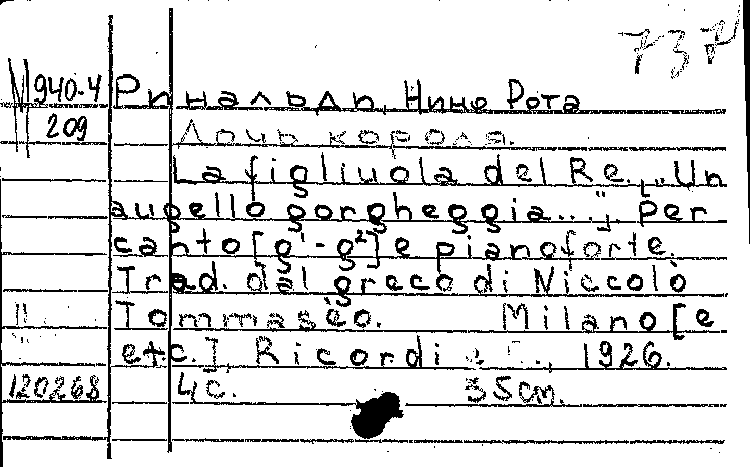 737
М940-4
209
Ринальди, Нино Рота
Дочь короля.
La figliuola del Re. [„Un
augello gorgheggia..."]. Per
canto [g¹-g²] e pianoforte.
Trad. dal greco di Niccolò
Tommasèo. Milano [e
etc.], Ricordi, 1926.
120268 4 с. 35 см.